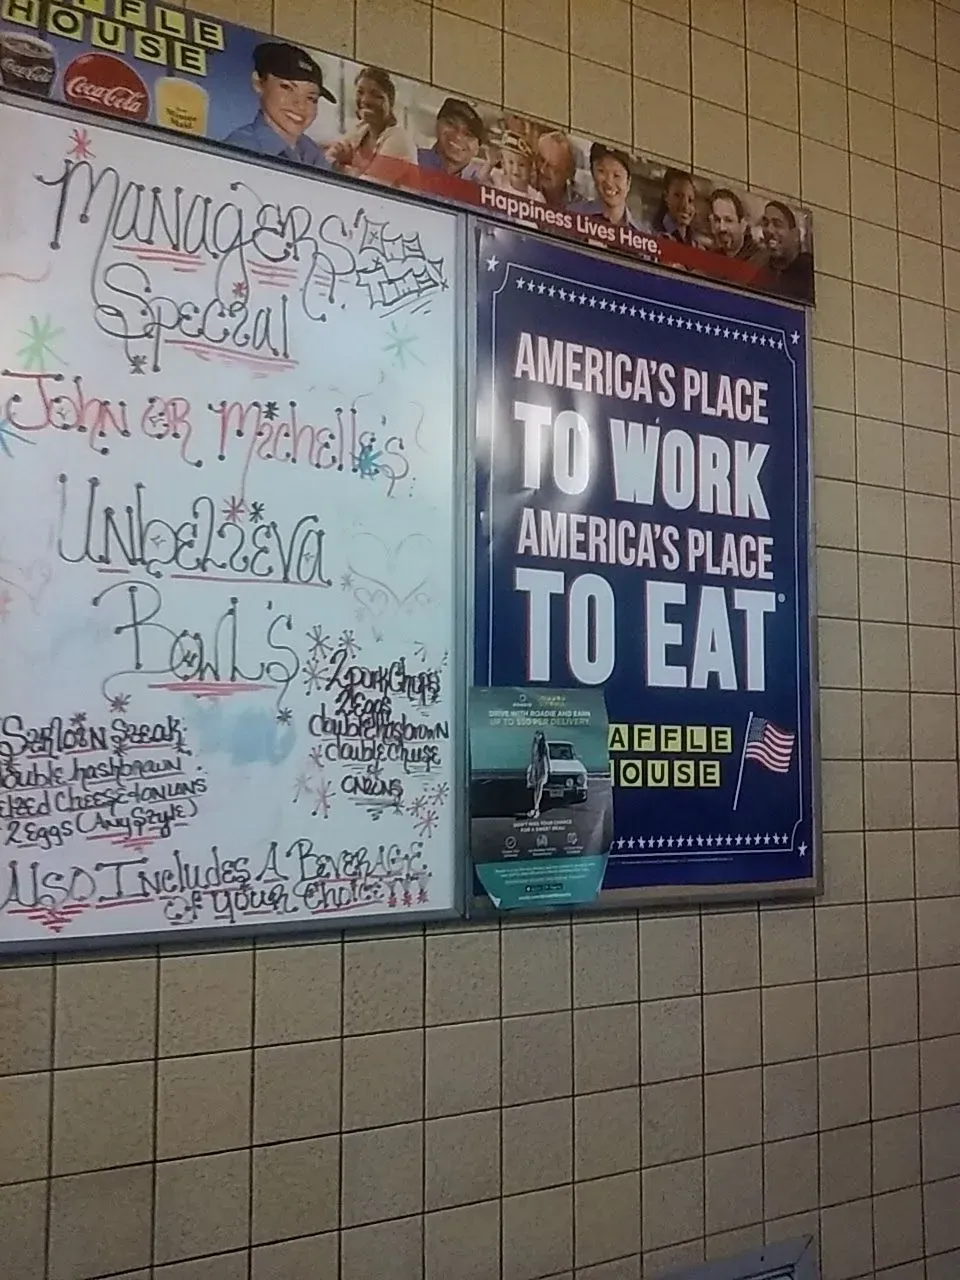 FFLE
HOUSE
Coca-Cola
Coca-Cola
Minute
Maid
Happiness Lives Here.
MANAGERS'
Special
John OR Michelle's
UNbelieva
Bowl's
Sirloin Steak
ouble hashbrown
Cheese + onions
2 Eggs (Any Style)
2 pork chops
2 Eggs
double hasbrown
double cheese
onions
Also Includes A Beverage
of your choice!!!
AMERICA'S PLACE
TO WORK
AMERICA'S PLACE
TO EAT
AFFLE
OUSE
DRIVE WITH ROADIE AND EARN
UP TO $50 PER DELIVERY
DON'T MISS YOUR CHANCE
FOR A SWEET DEAL!